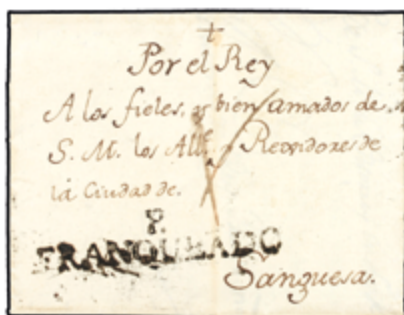 Por el Rey
A los fieles, y bien amados de
S. M. los Alld.s y Regidores de
la Ciudad de.
P.
FRANQUEADO
Sanguesa.